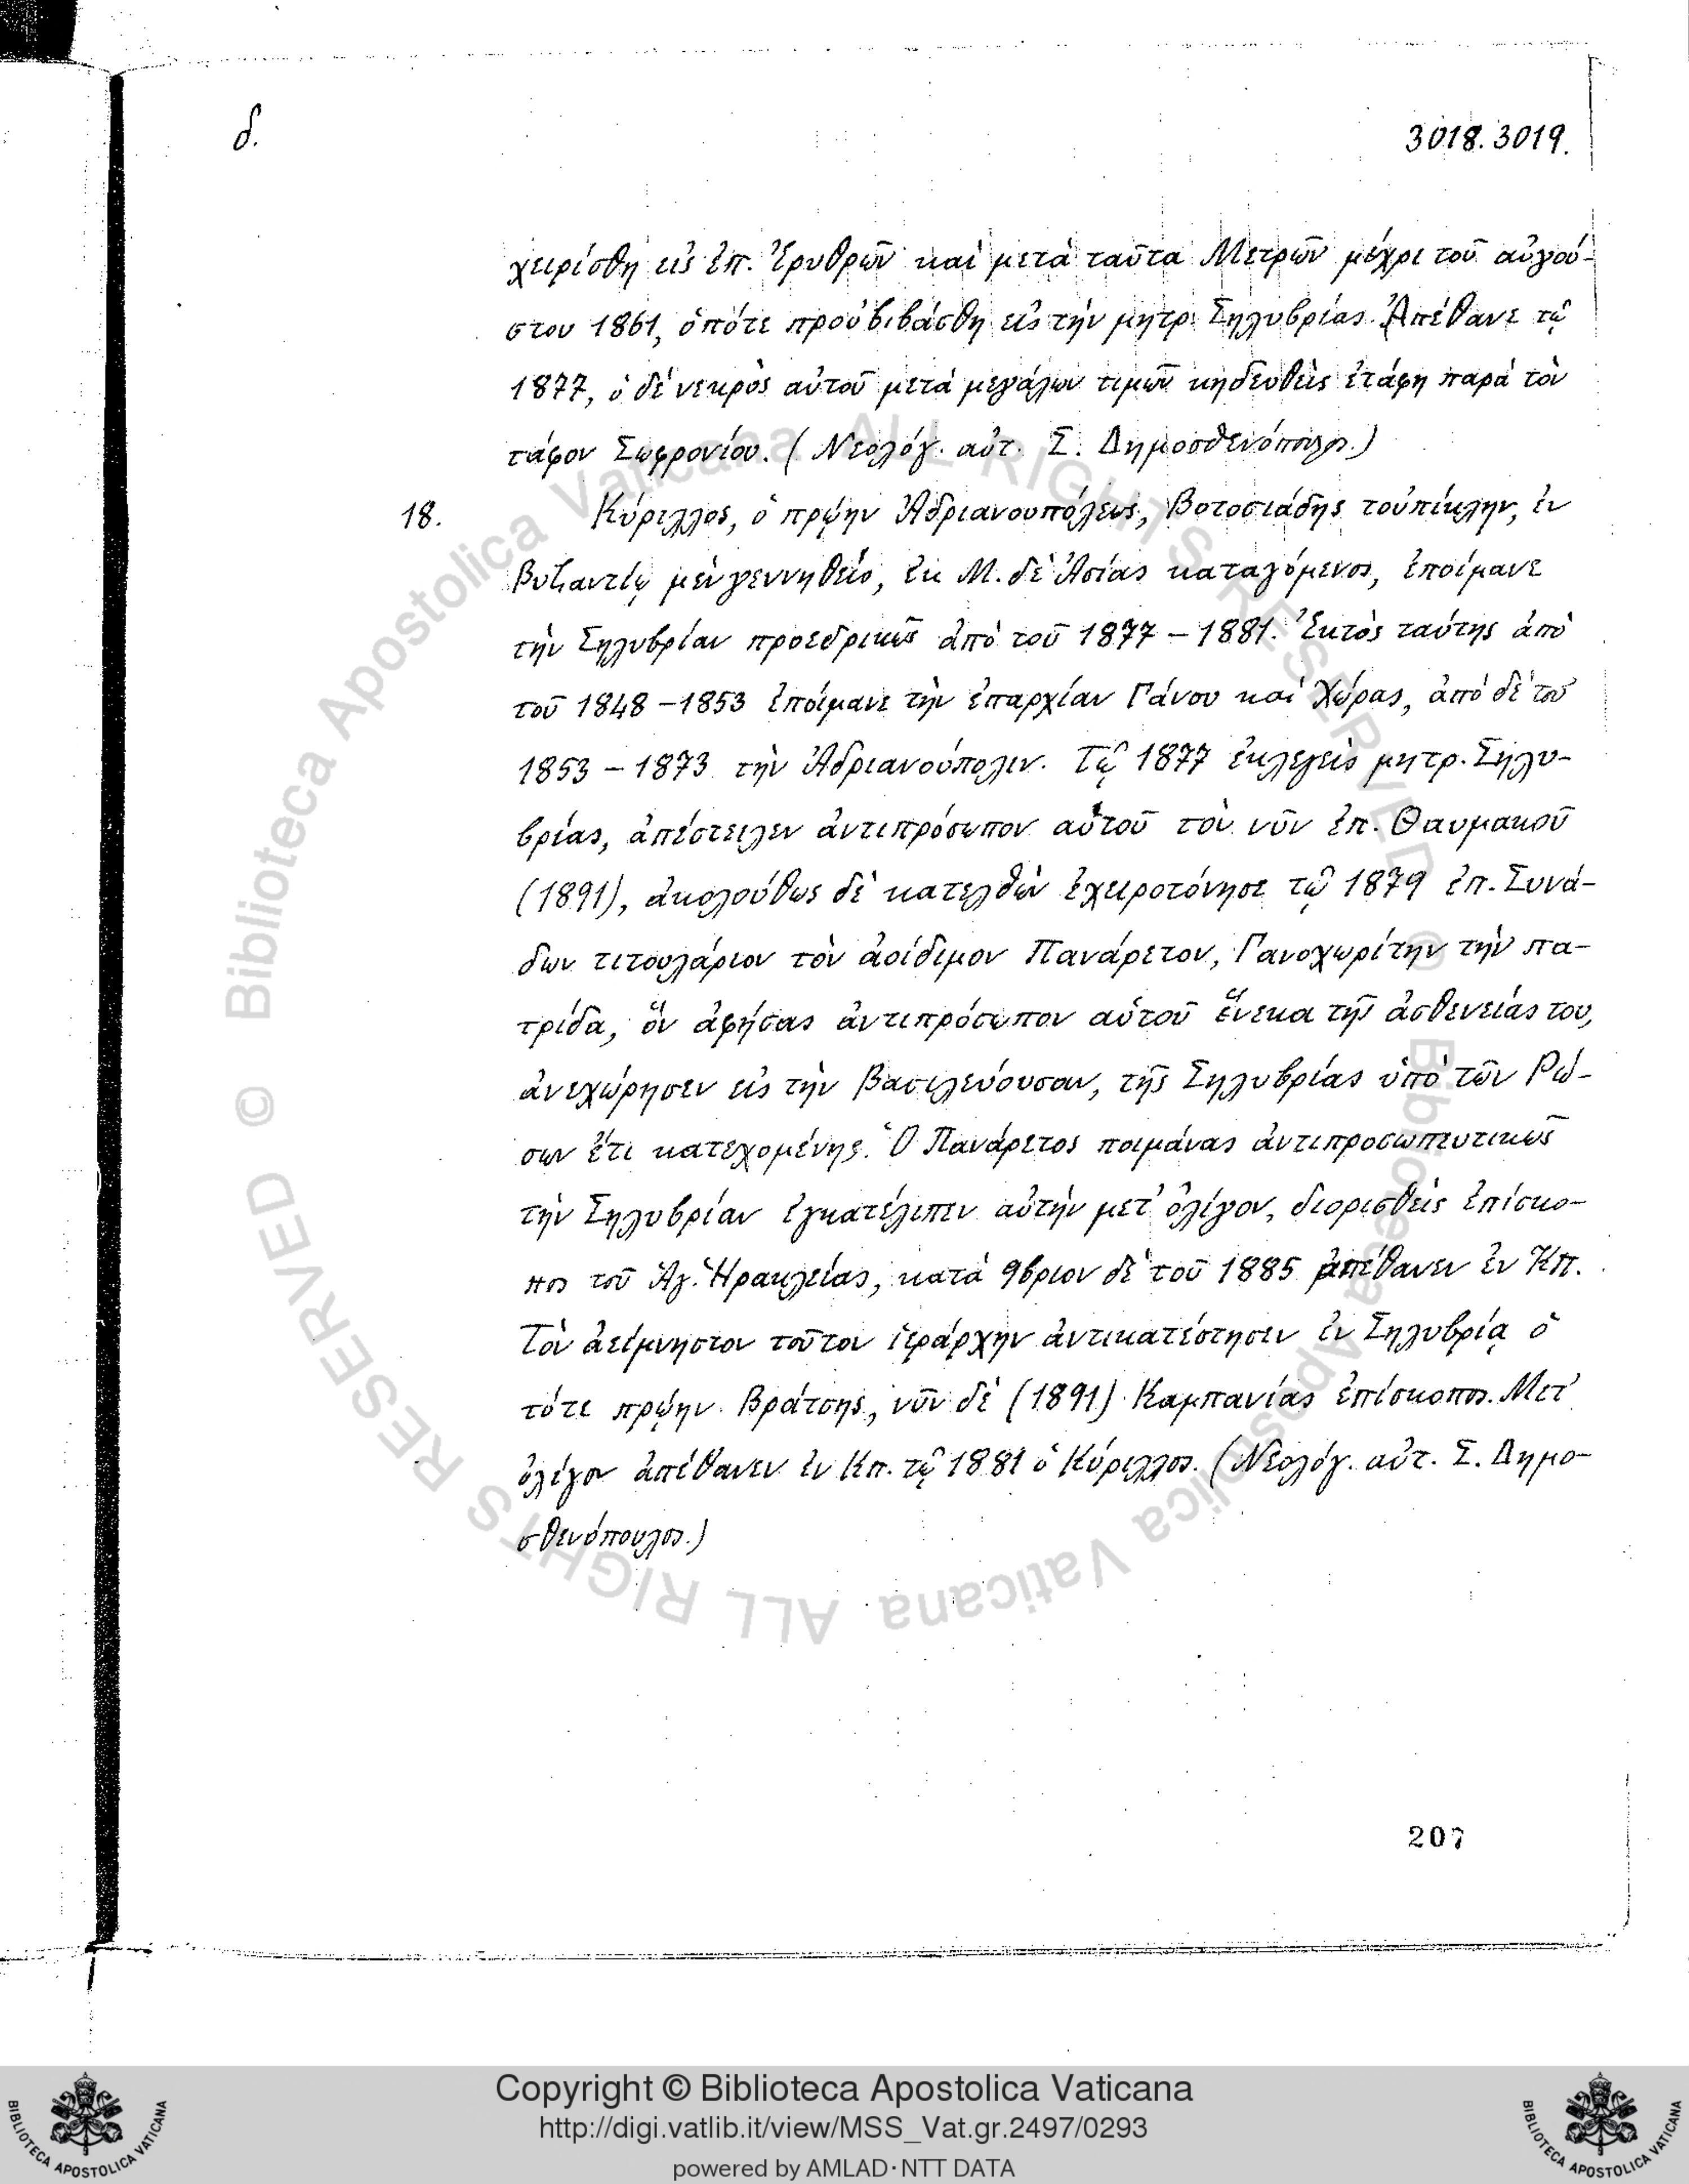 δ.
3018.3019.
χειρίσθη εἰς ἐπ. Ἐρυθρῶν καὶ μετὰ ταῦτα Μετρῶν μέχρι τοῦ αὐγού-
στου 1861, ὁπότε προὐβιβάσθη εἰς τὴν μητρ. Σηλυβρίας. Ἀπέθανε τῷ
1877, ὁ δὲ νεκρὸς αὐτοῦ μετὰ μεγάλων τιμῶν κηδευθεὶς ἐτάφη παρὰ τὸν
τάφον Σωφρονίου. (Νεολόγ. αὐτ. Σ. Δημοσθενόπουλος.)
18. Κύριλλος, ὁ πρώην Ἀδριανουπόλεως, Βοτοσιάδης τοὐπίκλην, ἐν
Βυζαντίῳ μὲν γεννηθείς, ἐκ Μ. δὲ Ἀσίας καταγόμενος, ἐποίμανε
τὴν Σηλυβρίαν προεδρικῶς ἀπὸ τοῦ 1877 – 1881. Ἐκτὸς ταύτης ἀπὸ
τοῦ 1848 – 1853 ἐποίμανε τὴν ἐπαρχίαν Γάνου καὶ Χώρας, ἀπὸ δὲ τοῦ
1853 – 1873 τὴν Ἀδριανούπολιν. Τῷ 1877 ἐκλεγεὶς μητρ. Σηλυ-
βρίας, ἀπέστειλεν ἀντιπρόσωπον αὑτοῦ τὸν νῦν ἐπ. Θαυμακοῦ
(1891), ἀκολούθως δὲ κατελθὼν ἐχειροτόνησε τῷ 1879 ἐπ. Συνά-
δων τιτουλάριον τὸν ἀοίδιμον Πανάρετον, Γανοχωρίτην τὴν πα-
τρίδα, ὃν ἀφήσας ἀντιπρόσωπον αὑτοῦ ἕνεκα τῆς ἀσθενείας του,
ἀνεχώρησεν εἰς τὴν βασιλεύουσαν, τῆς Σηλυβρίας ὑπὸ τῶν Ρώ-
σων ἔτι κατεχομένης. Ὁ Πανάρετος ποιμάνας ἀντιπροσωπευτικῶς
τὴν Σηλυβρίαν ἐγκατέλιπεν αὐτὴν μετ' ὀλίγον, διορισθεὶς ἐπίσκο-
πος τοῦ Ἁγ. Ἡρακλείας, κατὰ 9βριον δὲ τοῦ 1885 ἀπέθανεν ἐν Κπ.
Τὸν ἀείμνηστον τοῦτον ἱεράρχην ἀντικατέστησεν ἐν Σηλυβρίᾳ ὁ
τότε πρώην Βράτσης, νῦν δὲ (1891) Καμπανίας ἐπίσκοπος. Μετ'
ὀλίγον ἀπέθανεν ἐν Κπ. τῷ 1881 ὁ Κύριλλος. (Νεολόγ. αὐτ. Σ. Δημο-
σθενόπουλος.)
207
© Biblioteca Apostolica Vaticana ALL RIGHTS RESERVED
© Biblioteca Apostolica Vaticana ALL RIGHTS RESERVED
BIBLIOTECA APOSTOLICA VATICANA
Copyright © Biblioteca Apostolica Vaticana
http://digi.vatlib.it/view/MSS_Vat.gr.2497/0293
powered by AMLAD·NTT DATA
BIBLIOTECA APOSTOLICA VATICANA